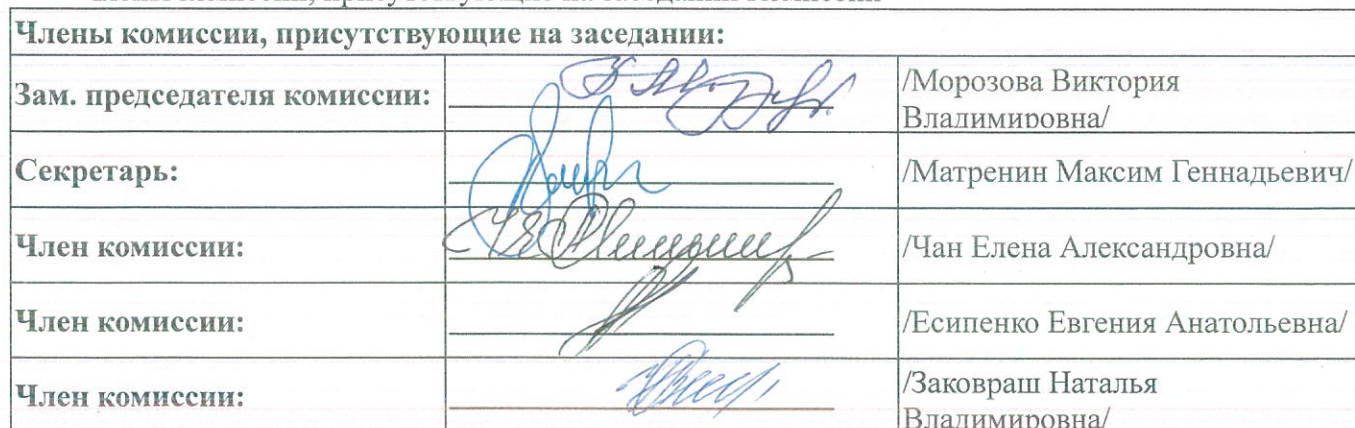 Члены комиссии, присутствующие на заседании:
Зам. председателя комиссии:
/Морозова Виктория
Владимировна/
Секретарь:
/Матренин Максим Геннадьевич/
Член комиссии:
/Чан Елена Александровна/
Член комиссии:
/Есипенко Евгения Анатольевна/
Член комиссии:
/Заковраш Наталья
Владимировна/